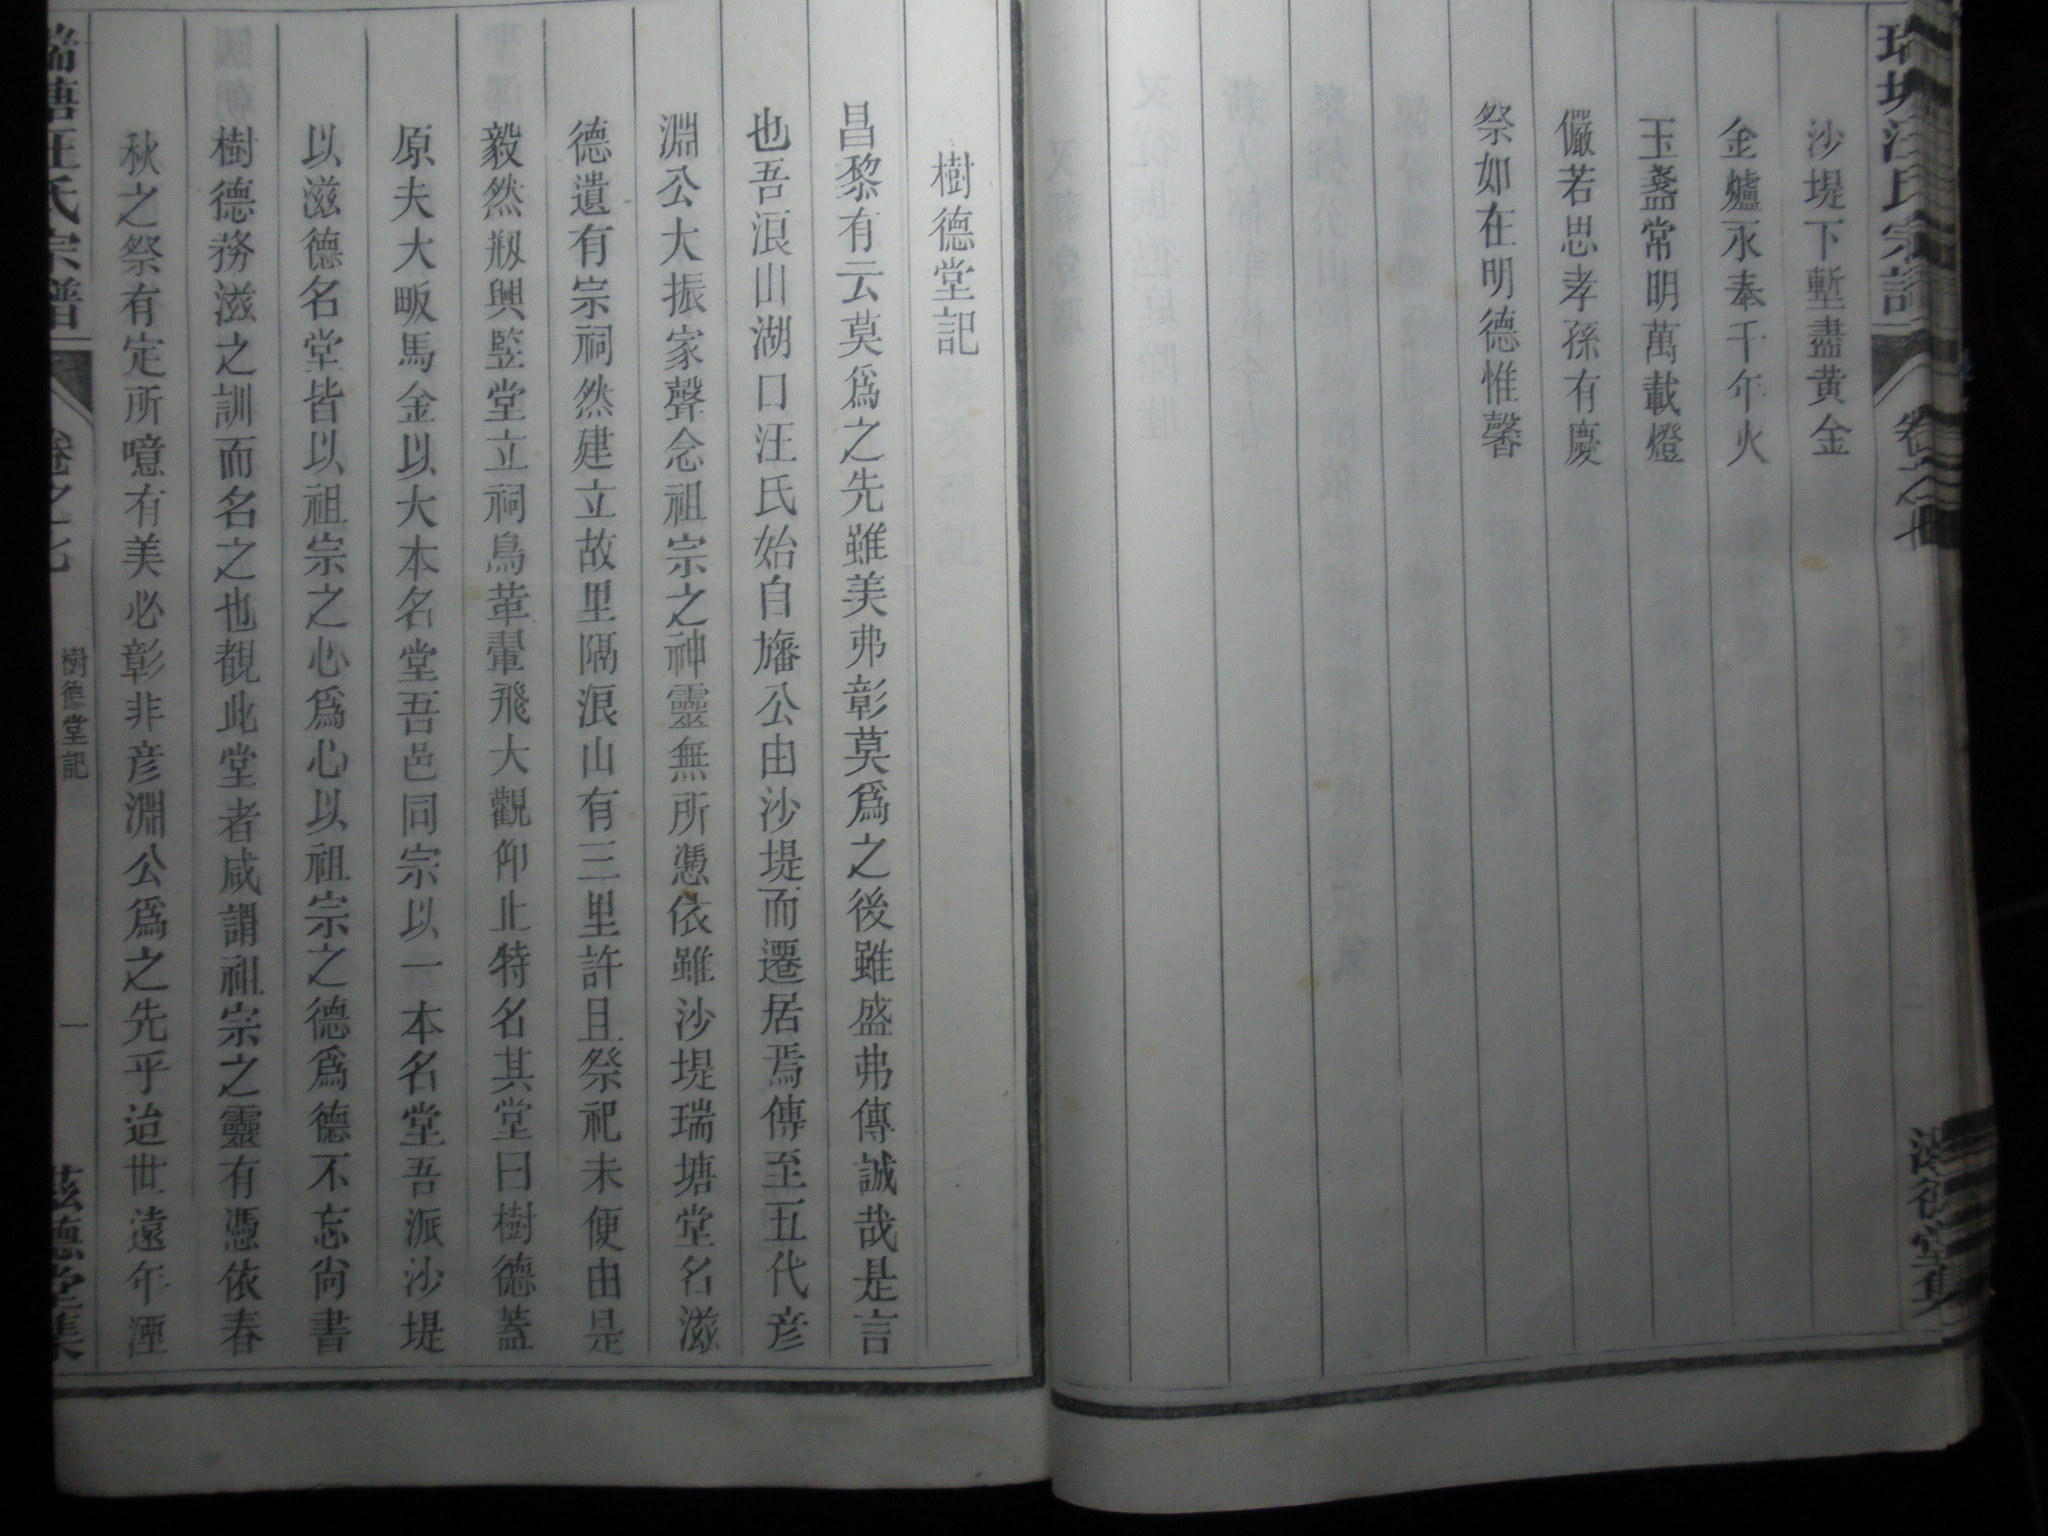 沙堤下塹盡黄金
金爐永奉千年火
玉盞常明萬載燈
儼若思孝孫有慶
祭如在明德惟馨
樹德堂記
昌黎有云莫爲之先雖美弗彰莫爲之後雖盛弗傳誠哉是言
也吾浪山湖口汪氏始自旛公由沙堤而遷居焉傳至五代彦
淵公大振家聲念祖宗之神靈無所憑依雖沙堤瑞塘堂名滋
德遺有宗祠然建立故里隔浪山有三里許且祭祀未便由是
毅然剏興監堂立祠鳥革翬飛大觀仰止特名其堂曰樹德蓋
原夫大畈馬金以大本名堂吾邑同宗以一本名堂吾派沙堤
以滋德名堂皆以祖宗之心爲心以祖宗之德爲德不忘尙書
樹德務滋之訓而名之也覩此堂者咸謂祖宗之靈有憑依春
秋之祭有定所噫有美必彰非彦淵公爲之先乎迨世遠年湮
瑞塘汪氏宗譜
卷之七
樹德堂記
一
滋德堂集